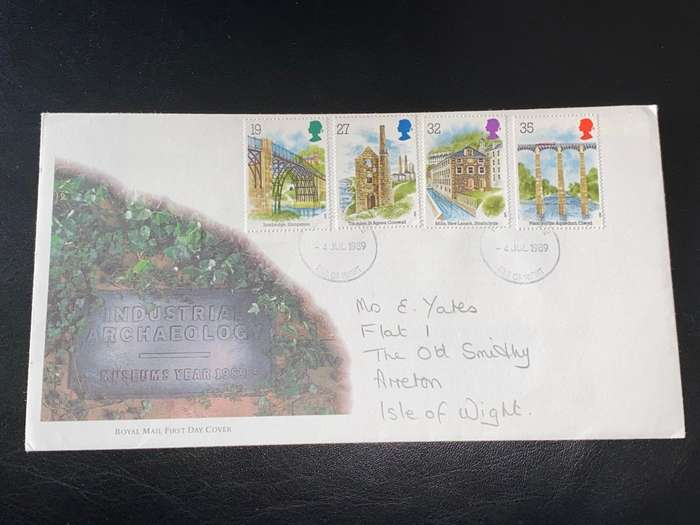 19
27
32
35
Ironbridge, Shropshire
Tin Mine, St Agnes, Cornwall
Mills, New Lanark, Strathclyde
Pontcysyllte Aqueduct, Clwyd
- 4 JUL 1989
ISLE OF WIGHT
- 4 JUL 1989
ISLE OF WIGHT
INDUSTRIAL
ARCHAEOLOGY
MUSEUMS YEAR 1989
Ms E. Yates
Flat 1
The Old Smithy
Arreton
Isle of Wight.
ROYAL MAIL FIRST DAY COVER